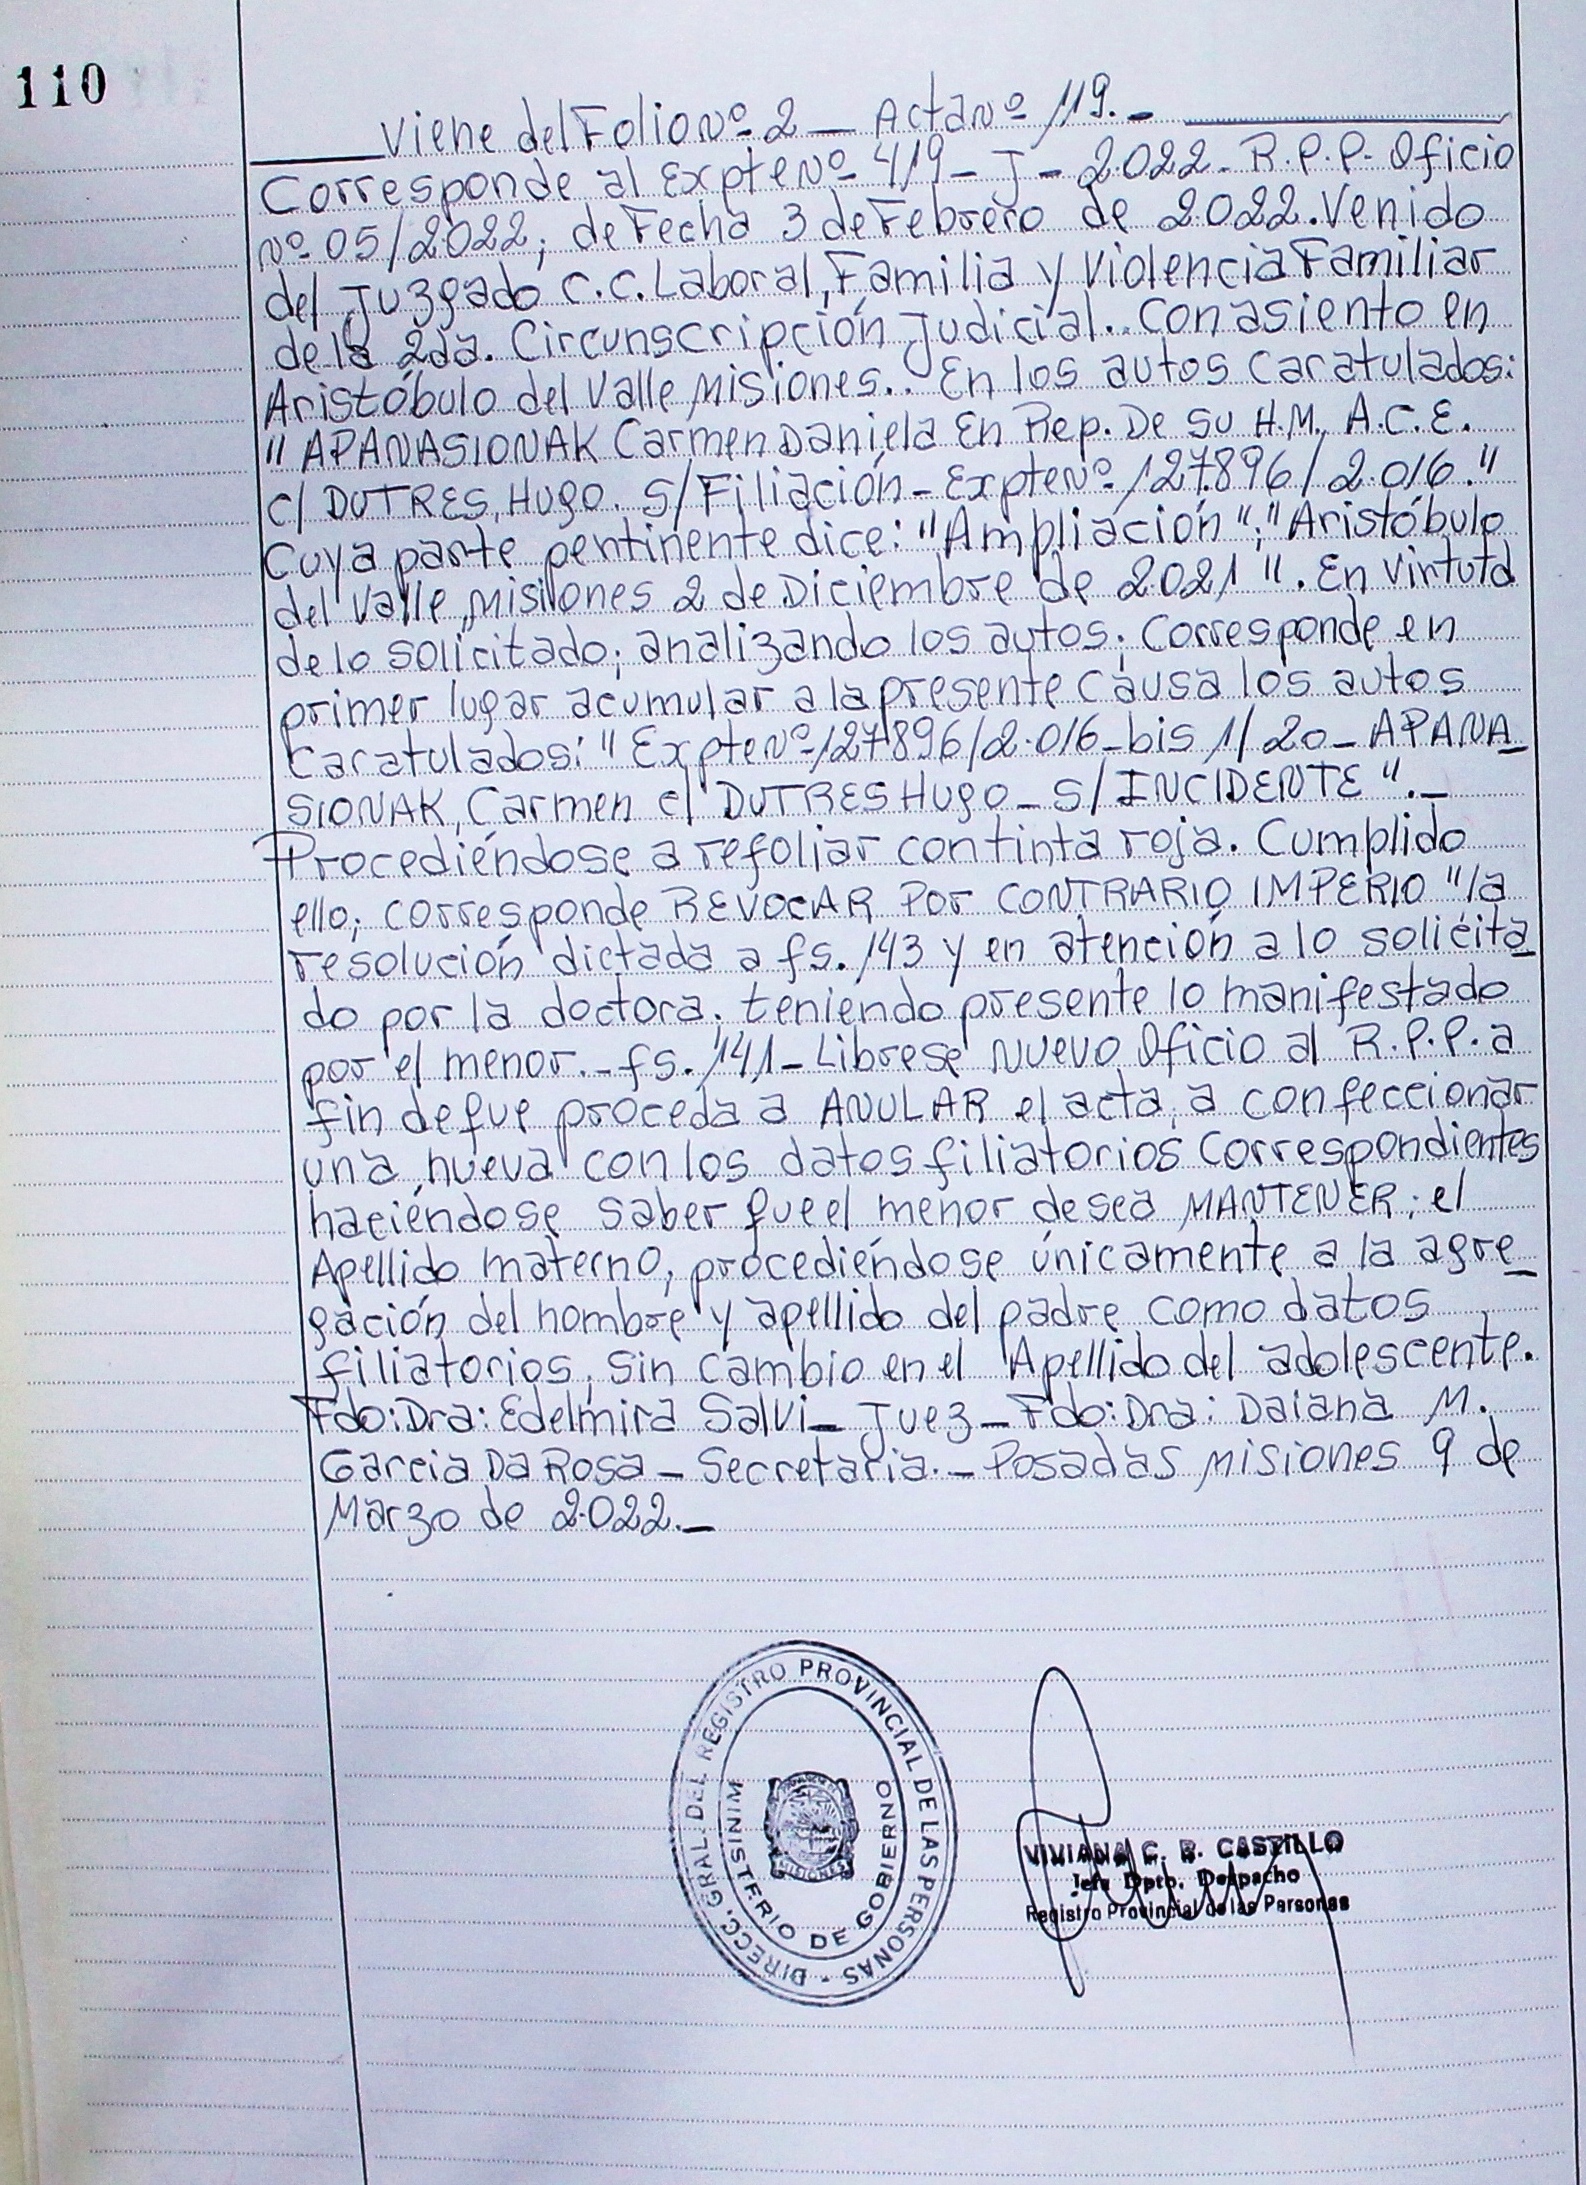 110
Viene del Folio Nº 2 _ Acta Nº 119. _
Corresponde al Expte Nº 419 _ J _ 2022 _ R.P.P. Oficio
Nº 05/2022; de Fecha 3 de Febrero de 2022. Venido
del Juzgado C.C. Laboral, Familia y Violencia Familiar
de la 2da. Circunscripción Judicial. Con asiento en
Aristóbulo del Valle Misiones. En los autos caratulados:
" APANASIONAK Carmen Daniela En Rep. De su H.M. A.C.E.
c/ DUTRES, Hugo. S/ Filiación _ Expte Nº 127896/2.016."
Cuya parte pentinente dice: "Ampliación"; "Aristóbulo
del Valle, Misiones 2 de Diciembre de 2021". En virtutd
de lo solicitado; analizando los autos; Corresponde en
primer lugar acumular a la presente causa los autos
Caratulados: " Expte Nº 127896/2.016 _ bis 1/20 _ APANA_
SIONAK, Carmen c/ DUTRES Hugo _ S/ INCIDENTE ". _
Procediéndose a refoliar con tinta roja. Cumplido
ello; corresponde REVOCAR POR CONTRARIO IMPERIO "la
resolución dictada a fs. 143 y en atención a lo solicita_
do por la doctora; teniendo presente lo manifestado
por el menor. _ fs. 141 _ Librese Nuevo Oficio al R.P.P. a
fin de que proceda a ANULAR el acta, a confeccionar
una nueva con los datos filiatorios Correspondientes
haciéndose saber que el menor desea MANTENER; el
Apellido materno, procediéndose únicamente a la agre_
gación del nombre y apellido del padre como datos
filiatorios, sin cambio en el Apellido del adolescente.
Fdo: Dra: Edelmira Salvi _ Juez _ Fdo: Dra: Daiana M.
Garcia Da Rosa _ Secretaria. _ Posadas Misiones 9 de
Marzo de 2.022. _
DIRECC. GRAL. DEL REGISTRO PROVINCIAL DE LAS PERSONAS -
MINISTERIO DE GOBIERNO
MISIONES
VIVIANA C. R. CASTILLO
Jefa Dpto. Despacho
Registro Provincial de las Personas